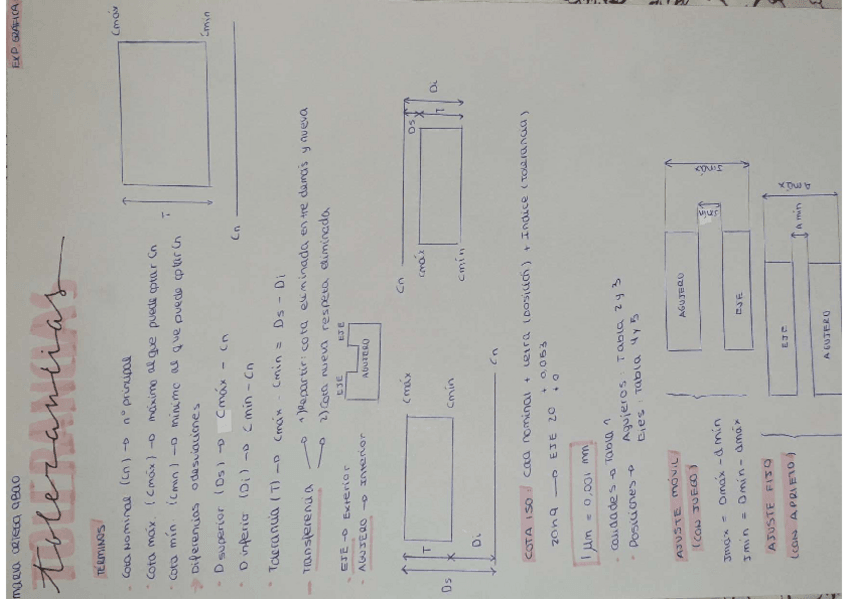 EXP. GRÁFICA
TOLERANCIAS
tolerancias
TÉRMINOS
· Cota nominal (Cn) → nº principal
· Cota máx. (Cmáx) → máximo al que puede optar Cn
· Cota mín (Cmin) → mínimo al que puede optar Cn
Diferencias o desviaciones
· D superior (Ds) → Cmáx - Cn
· D inferior (Di) → Cmin - Cn
· Tolerancia (T) → Cmáx - Cmin = Ds - Di
Cmáx
Cmin
T
Cn
- Transferencia → 1) Repartir: cota eliminada entre demás y nueva
→ 2) Cota nueva respeta eliminada
· EJE → Exterior
· AGUJERO → Interior
EJE
EJE
AGUJERO
Cmáx
Cmin
T
Ds
Di
Cn
Cn
Cmáx
Cmin
Ds
T
Di
COTA ISO / Cota nominal + Letra (posición) + Índice (tolerancia)
1 zona → EJE 20 + 0,053
+ 0
1 µm = 0,001 mm
· Calidades → Tabla 1
· Posiciones → Agujeros: Tabla 2 y 3
Ejes: Tabla 4 y 5
AJUSTE MÓVIL
(CON JUEGO)
Jmáx = Dmáx - dmin
Jmin = Dmin - dmáx
AGUJERO
EJE
Jmin
Jmáx
AJUSTE FIJO
(CON APRIETO)
EJE
AGUJERO
A min